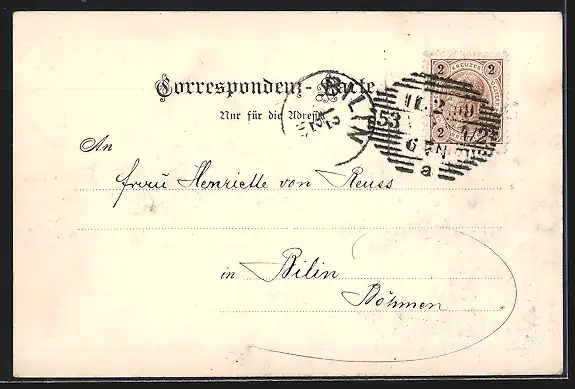 Correspondenz-Karte
Nur für die Adresse
BILIN
2 KREUZER 2
53
11.2.99
6 7.N
a
2
An
Frau Henriette von Reuss
in Bilin
Böhmen